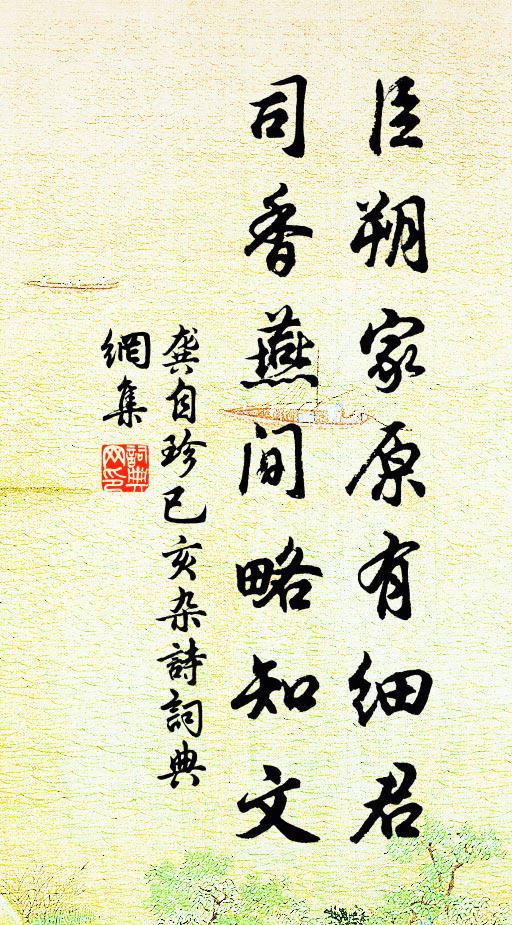 臣朔家原有細君
司香燕間略知文
龔自珍已亥杂詩詞典
網集
詞典
网印